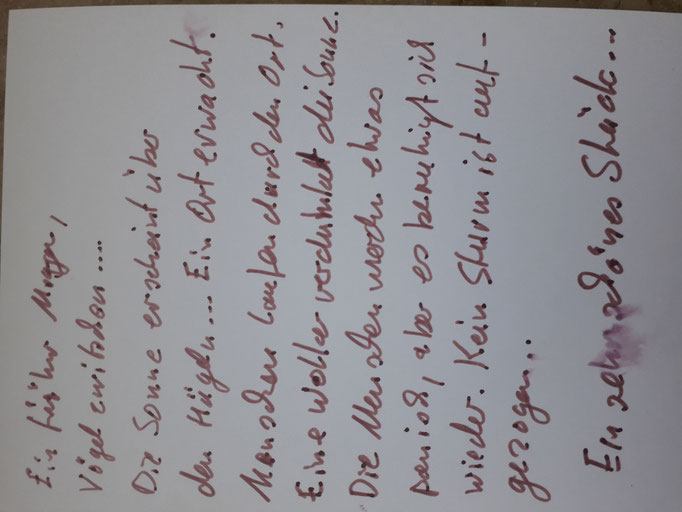 Ein früher Morgen,
Vögel zwitschern....
Die Sonne erscheint über
den Hügeln... Ein Ort erwacht.
Menschen laufen durch den Ort.
Eine Wolke verdunkelt die Sonne.
Die Menschen werden etwas
panisch, aber es beruhigt sich
wieder. Kein Sturm ist auf-
gezogen...
Ein sehr schönes Stück...